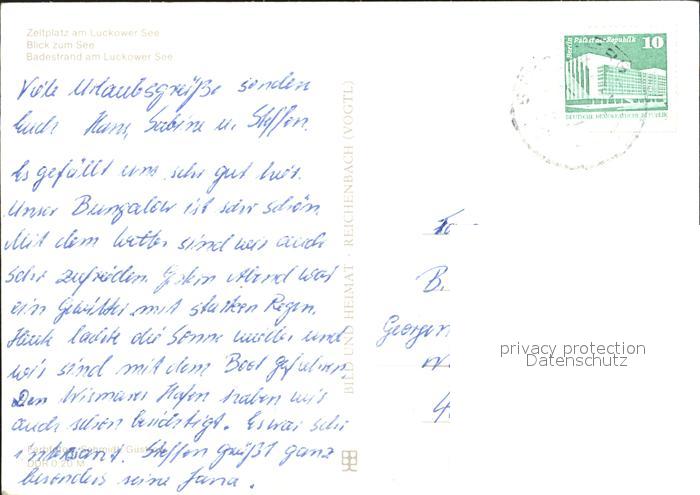 Zeltplatz am Luckower See
Blick zum See
Badestrand am Luckower See
Viele Urlaubsgrüße senden
Euch Hans, Sabine u. Steffen.
Es gefällt uns sehr gut hier.
Unser Bungalow ist sehr schön.
Mit dem Wetter sind wir auch
sehr zufrieden. Gestern Abend war
ein Gewitter mit starken Regen.
Heute lachte die Sonne wieder und
wir sind mit dem Boot gefahren.
Den Wismarer Hafen haben wir
auch schon besichtigt. Es war sehr
interessant. Steffen grüßt ganz
besonders seine Jana.
DDR 0,20 M
BILD UND HEIMAT · REICHENBACH (VOGTL)
Berlin Palast der Republik 10
DEUTSCHE DEMOKRATISCHE REPUBLIK
B.
Georgen
4
privacy protection
Datenschutz